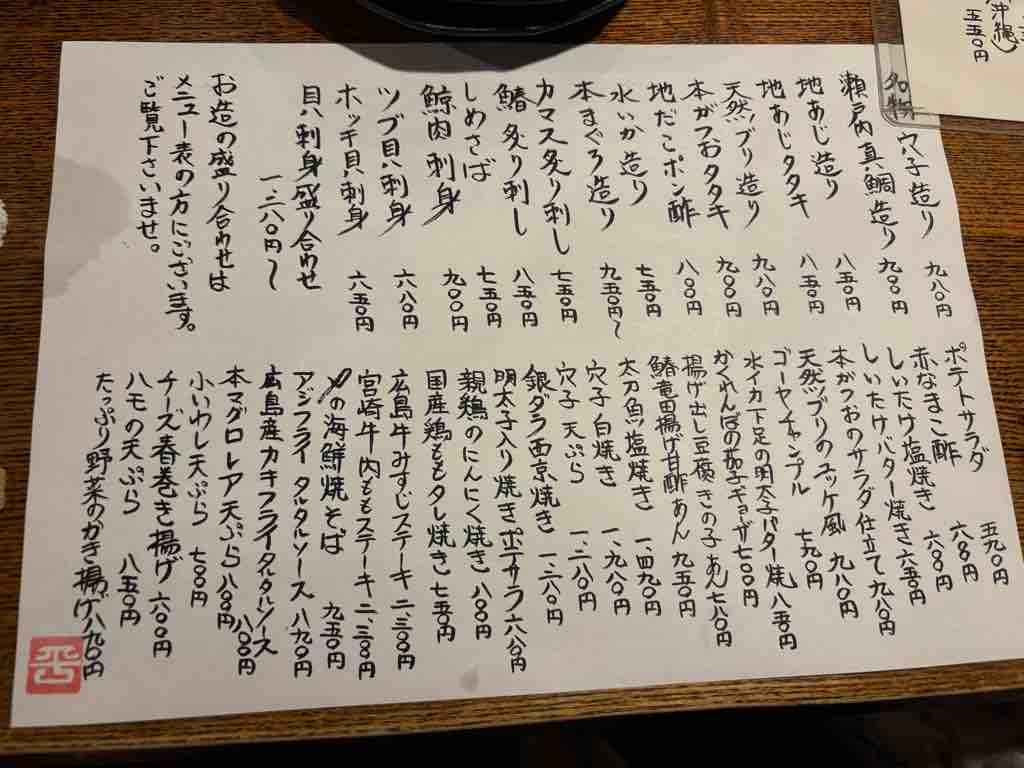 (沖縄)
五五〇円
名物 穴子造り 九八〇円
瀬戸内真鯛造り 九〇〇円
地あじ造り 八五〇円
地あじタタキ 八五〇円
天然ブリ造り 九八〇円
本がつおタタキ 九〇〇円
地だこポン酢 八〇〇円
水いか造り 七五〇円
本まぐろ造り 九五〇円〜
カマス炙り刺し 七五〇円
鰆炙り刺し 八五〇円
しめさば 七五〇円
鯨肉刺身 九〇〇円
ツブ貝刺身 六八〇円
ホッキ貝刺身 六五〇円
貝刺身盛り合わせ
一、二八〇円〜
お造の盛り合わせは
メニュー表の方にございます。
ご覧下さいませ。
ポテトサラダ 五九〇円
赤なまこ酢 六八〇円
しいたけ塩焼き 六〇〇円
しいたけバター焼き 六五〇円
本がつおのサラダ仕立て 九八〇円
天然ブリのユッケ風 九八〇円
ゴーヤチャンプル 七九〇円
水イカ下足の明太子バター焼 八五〇円
かくれんぼの茄子ギョーザ 七〇〇円
揚げ出し豆腐きの子あん 七八〇円
鰆竜田揚げ甘酢あん 九五〇円
太刀魚塩焼き 一、四九〇円
穴子白焼き 一、九八〇円
穴子天ぷら 一、二八〇円
銀ダラ西京焼き 一、二八〇円
明太子入り焼きポテサラ 六八〇円
親鶏のにんにく焼き 八〇〇円
国産鶏ももタレ焼き 七五〇円
広島牛みすじステーキ 二、三〇〇円
宮崎牛内ももステーキ 二、三〇〇円
〆の海鮮焼そば 九五〇円
アジフライタルタルソース 八九〇円
広島産カキフライタルタルソース 八〇〇円
本マグロレア天ぷら 八〇〇円
小いわし天ぷら 七〇〇円
チーズ春巻き揚げ 六〇〇円
ハモの天ぷら 八五〇円
たっぷり野菜のかき揚げ 八九〇円